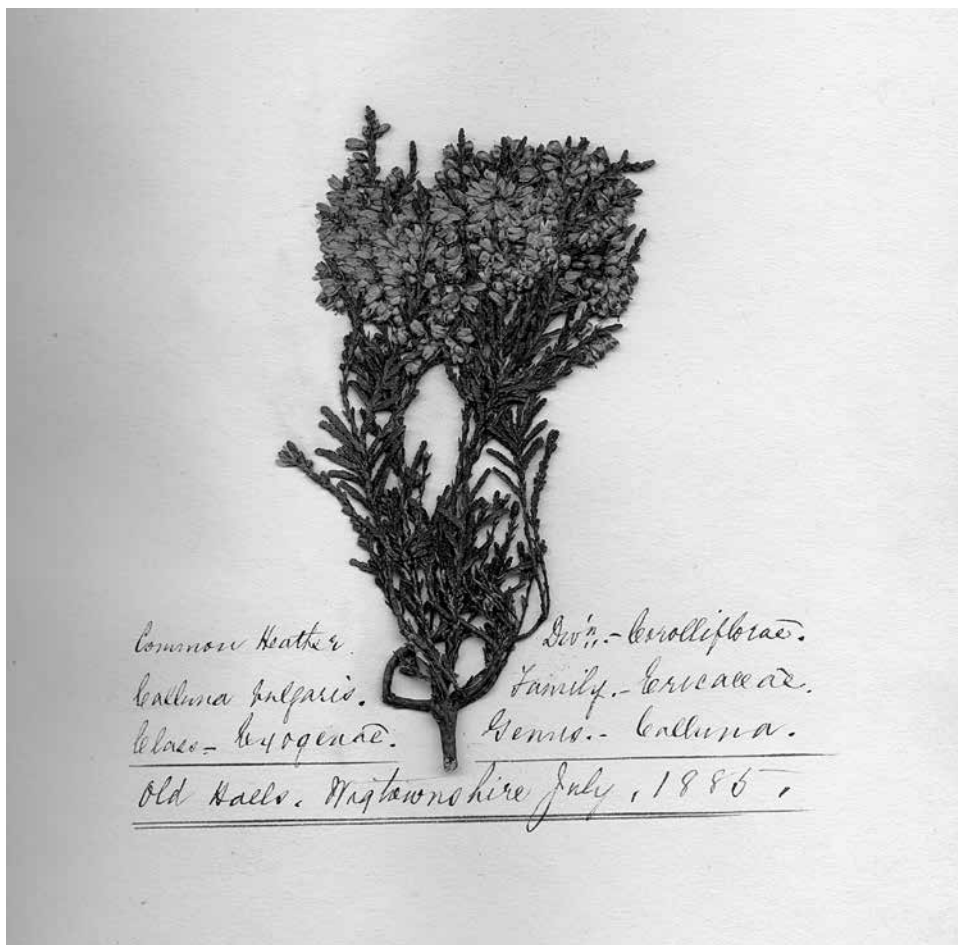 Common Heather.
Calluna vulgaris.
Class- Exogenae.
Div'n.- Corolliflorae.
Family.- Ericaceae.
Genus.- Calluna.
Old Halls. Wigtownshire July, 1885.